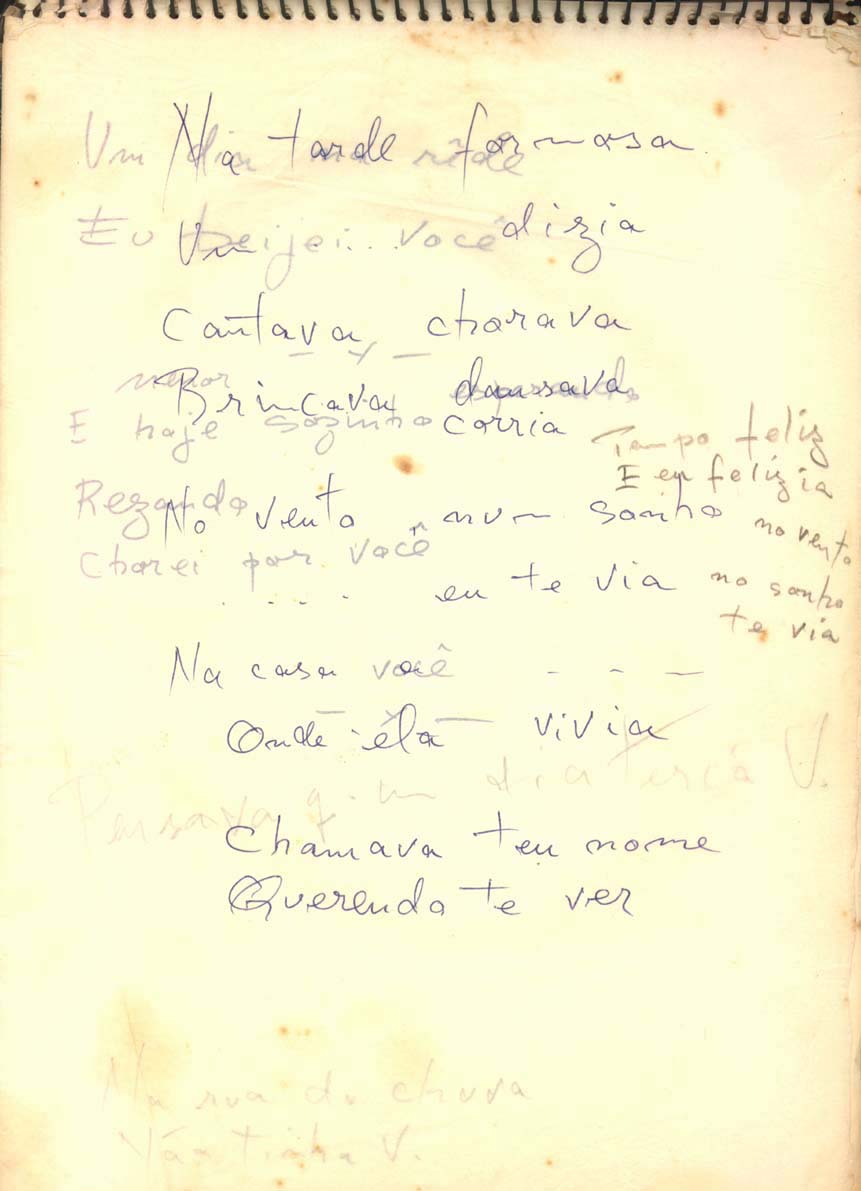 Na tarde formosa
Um dia
Eu beijei... você
Um dizia
Cantava, chorava
Brincava dansava
corria
E hoje sozinho
Tempo feliz
E eu felizia
Rezando
No vento num sonho
no vento
Chorei por você
.... eu te via
no sonho
te via
Na casa você - - -
Onde ela vivia
Pensava q. um dia teria V.
Chamava teu nome
Querendo te ver
Na rua da chuva
Não tinha V.